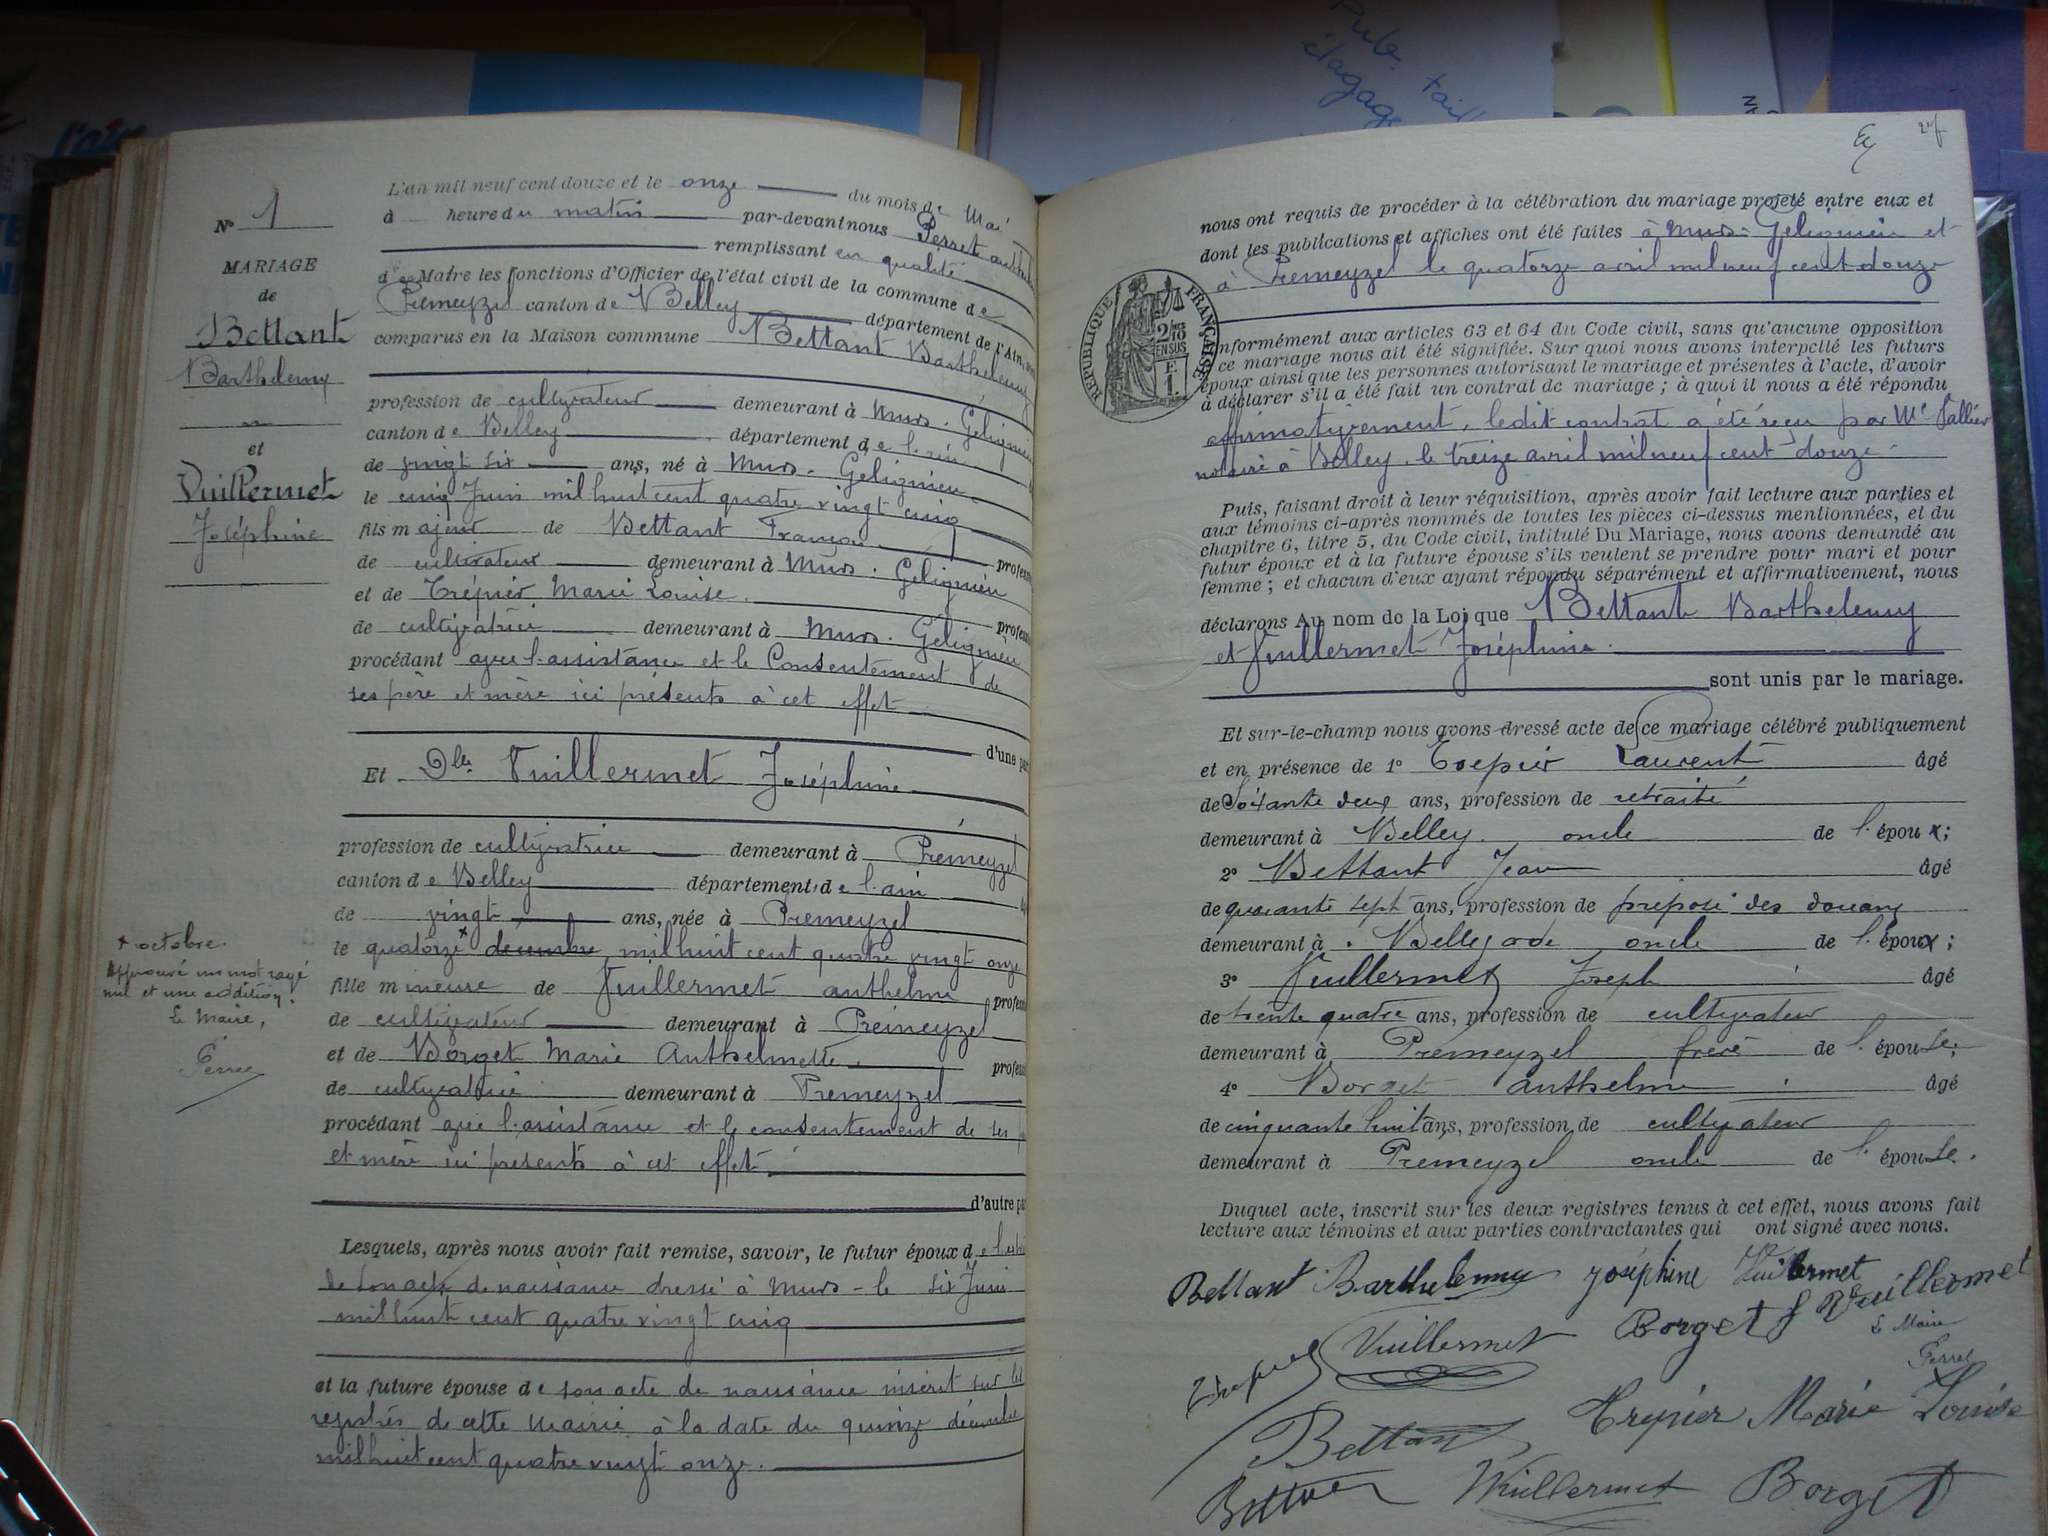 Pub. taill
élagag
N° 1
MARIAGE
de
Bettant
Barthelemy
et
Vuillermet
Joséphine
L'an mil neuf cent douze et le onze du mois de Mai
à heure du matin par-devant nous Perret
remplissant en qualité
de Maire les fonctions d'Officier de l'état civil de la commune de
Prémeyzel canton de Belley département de l'Ain,
comparus en la Maison commune Bettant Barthelemy
profession de cultivateur demeurant à Murs. Gélignieu
canton de Belley département de l'ain
de vingt six ans, né à Murs. Gélignieu
le cinq Juin mil huit cent quatre vingt cinq
fils majeur de Bettant François profess
de cultivateur demeurant à Murs. Gélignieu
et de Trépier Marie Louise. profess
de cultivatrice demeurant à Murs. Gélignieu
procédant avec l'assistance et le Consentement de
ses père et mère ici présents à cet effet
d'une par
Et Dlle Vuillermet Joséphine
profession de cultivatrice demeurant à Prémeyzel
canton de Belley département de l'ain
de vingt ans, née à Premeyzel
le quatorze x décembre mil huit cent quatre vingt onze
x octobre.
Approuvé un mot rayé
nul et une addition.
Le Maire,
Perret
fille mineure de Vuillermet anthelme profess
de cultivateur demeurant à Prémeyzel
et de Borget Marie Anthelmette. profess
de cultivatrice demeurant à Premeyzel
procédant avec l'assistance et le consentement de ses
et mère ici présents à cet effet
d'autre pa
Lesquels, après nous avoir fait remise, savoir, le futur époux de
de son acte de naissance dressé à Murs - le six Juin
mil huit cent quatre vingt cinq
et la future épouse de son acte de naissance inscrit sur les
registres de cette Mairie à la date du quinze décembre
mil huit cent quatre vingt onze.
nous ont requis de procéder à la célébration du mariage projeté entre eux et
dont les publications et affiches ont été faites à Murs-Gélignieu et
à Premeyzel le quatorze avril mil neuf cent douze
RÉPUBLIQUE FRANÇAISE
2/10
EN SUS
F.
1.
nformément aux articles 63 et 64 du Code civil, sans qu'aucune opposition
ce mariage nous ait été signifiée. Sur quoi nous avons interpellé les futurs
époux ainsi que les personnes autorisant le mariage et présentes à l'acte, d'avoir
à déclarer s'il a été fait un contrat de mariage ; à quoi il nous a été répondu
affirmativement, ledit contrat a été reçu par Me
notaire à Belley, le treize avril mil neuf cent douze
Puis, faisant droit à leur réquisition, après avoir fait lecture aux parties et
aux témoins ci-après nommés de toutes les pièces ci-dessus mentionnées, et du
chapitre 6, titre 5, du Code civil, intitulé Du Mariage, nous avons demandé au
futur époux et à la future épouse s'ils veulent se prendre pour mari et pour
femme ; et chacun d'eux ayant répondu séparément et affirmativement, nous
déclarons Au nom de la Loi que Bettant Barthelemy
et Vuillermet Joséphine.
sont unis par le mariage.
Et sur-le-champ nous avons dressé acte de ce mariage célébré publiquement
et en présence de 1° Trepier Laurent âgé
de Soixante deux ans, profession de retraité
demeurant à Belley. oncle de l'époux;
2° Bettant Jean âgé
de quarante sept ans, profession de préposé des douanes
demeurant à Bellegarde oncle de l'époux;
3° Vuillermet Joseph âgé
de trente quatre ans, profession de cultivateur
demeurant à Prémeyzel frère de l'épouse;
4° Borget anthelme âgé
de cinquante huit ans, profession de cultivateur
demeurant à Premeyzel oncle de l'épouse.
Duquel acte, inscrit sur les deux registres tenus à cet effet, nous avons fait
lecture aux témoins et aux parties contractantes qui ont signé avec nous.
Bettant Barthelemy Joséphine Vuillermet
Vuillermet Borget Vuillermet
Le Maire
Perret
Trepier Marie Louise
Bettant
Bettant Vuillermet Borget